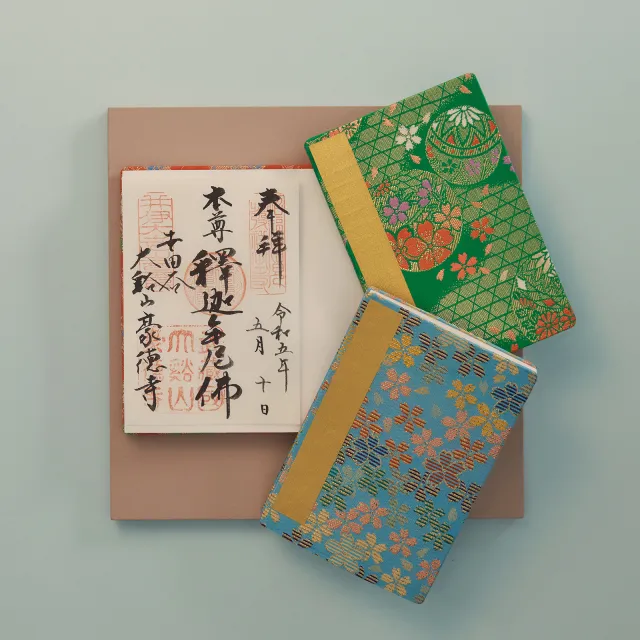 奉拝
令和五年
五月十日
本尊
釋迦牟尼佛
大谿山豪徳寺